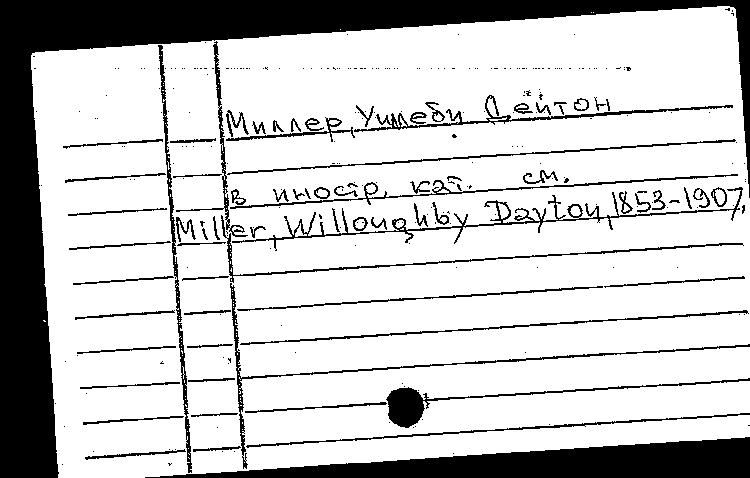 Миллер, Уиллеби Дейтон
в иностр. кат. см.
Miller, Willoughby Dayton, 1853-1907.